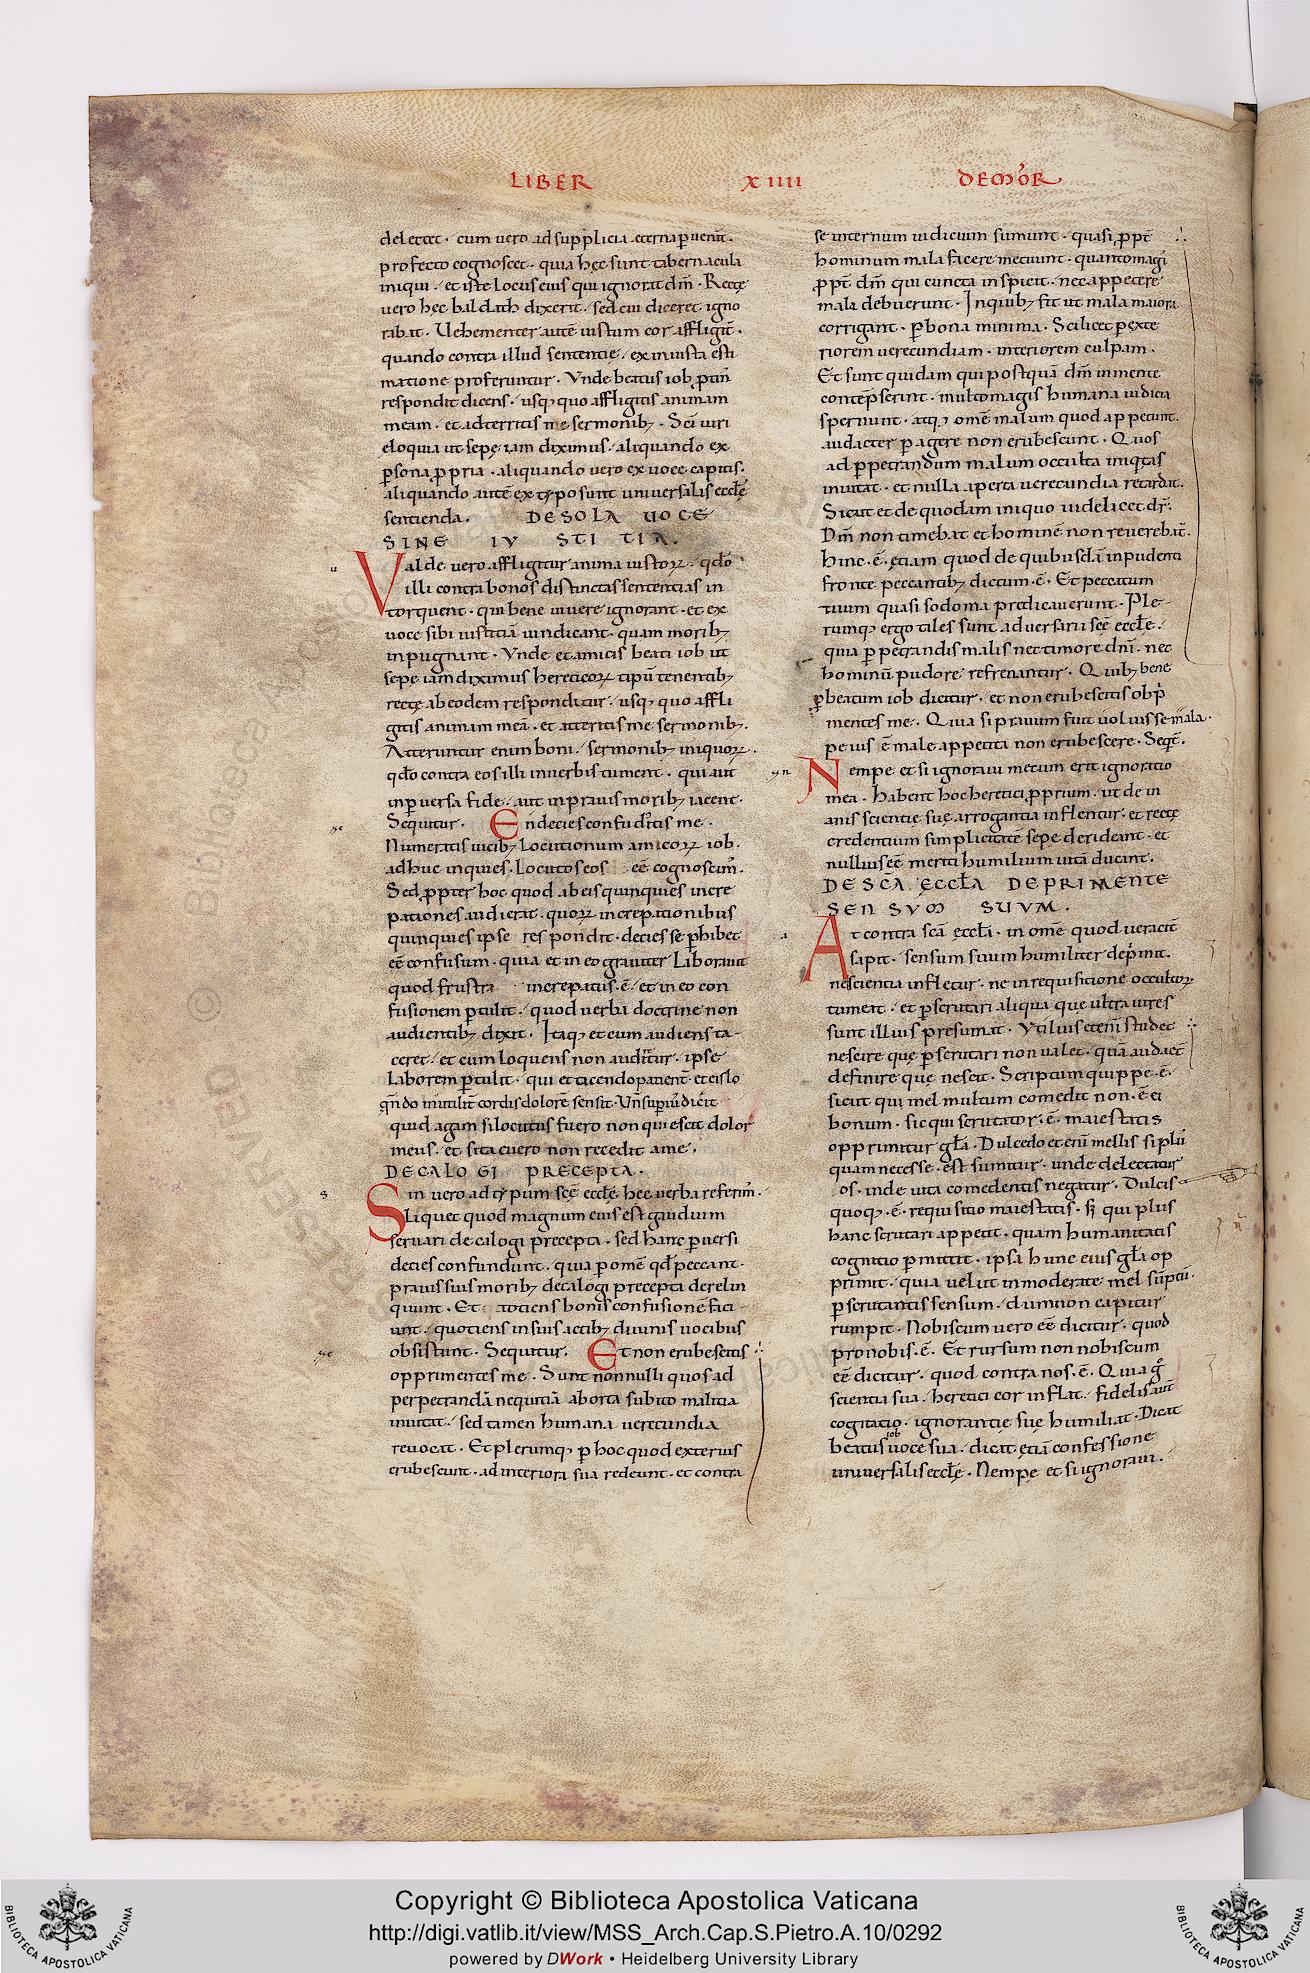 LIBER XIIII DEMOR
delectet · cum vero ad supplicia eterna pvenit ·
profecto cognoscet · quia hęc sunt tabernacula
iniqui · et iste locus eius qui ignorat dm̄ · Recte
vero hec baldach dixerit · sed cui diceret igno
rabat · Uehementer autē iustum cor affligit ·
quando contra illud sententie · ex iniusta esti
matione proferuntur · Vnde beatus iob ptin̄
respondit dicens · usq; quo affligitis animam
meam · et adterritis me sermonib; · Sc̄i uiri
eloquia ut sepę iam diximus · aliquando ex
psona ppria · aliquando vero ex uoce capitis ·
aliquando autē ex typo sunt universalis eccłę
sentienda · DE SOLA UOCE
SINE IUSTITIA ·
Valde vero affligitur anima iustoꝝ · qdo
illi contra bonos distinctas sententias in
torquent · qui bene uivere ignorant · et ex
voce sibi iustitiā uindicant · quam morib;
inpugnant · Vnde et amicis beati iob ut
sepę iam diximus hereticoꝝ tipū tenentib;
recte ab eodem responditur · usq; quo affli
gitis animam meā · et atteritis me sermonib; ·
Atteruntur enim boni · sermonib; iniquoꝝ ·
qdo contra eos illi in verbis tument · qui aut
in pversa fide · aut in pravis morib; iacent ·
Sequitur · En decies confuditis me ·
Numeratis vicib; locutionum amicoꝝ iob ·
adhuc inquies · locutos eos eē cognoscim̄ ·
Sed ppter hoc quod ab eis quinquies incre
pationes audierat · quoꝝ increpationibus
quinquies ipse respondit · decies se phibet
eē confusum · quia et in eo graviter laboravit
quod frustra increpatus · ē · et in eo con
fusionem ptulit · quod verba doctrine non
audientib; dixit · Itaq; et cum audiens ta-
ceret · et cum loquens non auditur · ipse
laborem ptulit · qui et tacendo patient̄ et eis lo
qn̄do inutilit̄ cordis dolorē sensit · Un̄ supius dicit
quid agam si locutus fuero non quiescit dolor
meus · et si tacuero non recedit a me ·
DECALOGI PRECEPTA ·
Sin vero ad typum scē eccłę hec verba referim̄ ·
Liquet quod magnum eius est gaudium
servari decalogi precepta · sed hanc pversi
decies confundunt · quia p omē qd peccant ·
pravis suis morib; decalogi precepta derelin
quunt · Et totiens bonis confusionē faci
unt · quotiens in suis actib; divinis vocibus
obsistunt · Sequitur · Et non erubescitis
opprimentes me · Sunt nonnulli quos ad
perpetrandā nequitiā aborta subito malitia
invitat · sed tamen humana verecundia
revocat · Et plerumq; p hoc quod exterius
erubescunt · ad interiora sua redeunt · et contra
se internum iudicium sumunt · quasi ppt̄
hominum mala facere metuunt · quanto magi
ppt̄ dm̄ qui cuncta inspicit · nec appetere
mala debuerunt · In quib; fit ut mala maiora
corrigant · p bona minima · Scilicet p exte
riorem verecundiam · interiorem culpam ·
Et sunt quidam qui postquā dm̄ in mente
contēpserint · multo magis humana iudicia
spernunt · atq; omē malum quod appetunt ·
audacter pagere non erubescunt · Quos
ad ppetrandum malum occulta iniqtas
invitat · et nulla aperta verecundia retardat ·
Sicut et de quodam iniquo videlicet dr̄ ·
Dm̄ non timebat et hominē non reverebat̄ ·
hinc · ē · etiam quod de quibusdā inpudenti
fronte peccantib; dictum · ē · Et peccatum
suum quasi sodoma predicaverunt · Ple-
rumq; ergo tales sunt adversarii scē eccłe ·
quia ppetrandis malis nec timore dn̄i · nec
hominū pudore refrenantur · Quib; bene
p beatum iob dicitur · et non erubescitis opp̄
mentes me · Quia si pravum fuit voluisse mala ·
peius ē male appetita non erubescere · Seqt̄ ·
Nempe et si ignoravi mecum erit ignoratio
mea · habent hoc heretici pprium · ut de in
anis scientie suę arrogantia inflentur · et recte
credentium simplicitatē sepe derideant · et
nullius eē meriti humilium vitā ducant ·
DE SCĀ ECCŁA DEPRIMENTE
SENSVM SUVM ·
At contra scā eccła · in omē quod veracit̄
sapit · sensum suum humiliter depimit ·
ne scientia infletur · ne in requisitione occultoꝝ
tumeat · et pscrutari aliqua que ultra vires
sunt illius presumat · Vtilius etenī studet
nescire quę pscrutari non valet · quā audact̄
definire que nescit · Scriptum quippe · ē ·
sicut qui mel multum comedit non · ē ei
bonum · sic qui scrutator · ē · maiestatis
opprimitur głā · Dulcedo etenī mellis si plus
quam necesse · est sumitur · unde delectatur
os · inde vita comedentis negatur · Dulcis
quoq; · ē · requisitio maiestatis · s; qui plus
hanc scrutari appetit · quam humanitatis
cognitio pmittit · ipsa hunc eius głā op
primit · quia velut inmoderate mel sūptū ·
pscrutantis sensum · dum non capitur
rumpit · Nobiscum vero eē dicitur · quod
pro nobis · ē · Et rursum non nobiscum
eē dicitur · quod contra nos · ē · Quia g̊
scientia sua · heretici cor inflat · fidelis aut̄
cogitatio · ignorantię suę humiliat · Dicat
beatus iob voce sua · dicat etiā confessione
universalis eccłę · Nempe et si ignoravi ·
Copyright © Biblioteca Apostolica Vaticana
http://digi.vatlib.it/view/MSS_Arch.Cap.S.Pietro.A.10/0292
powered by DWork • Heidelberg University Library
BIBLIOTECA APOSTOLICA VATICANA
BIBLIOTECA APOSTOLICA VATICANA